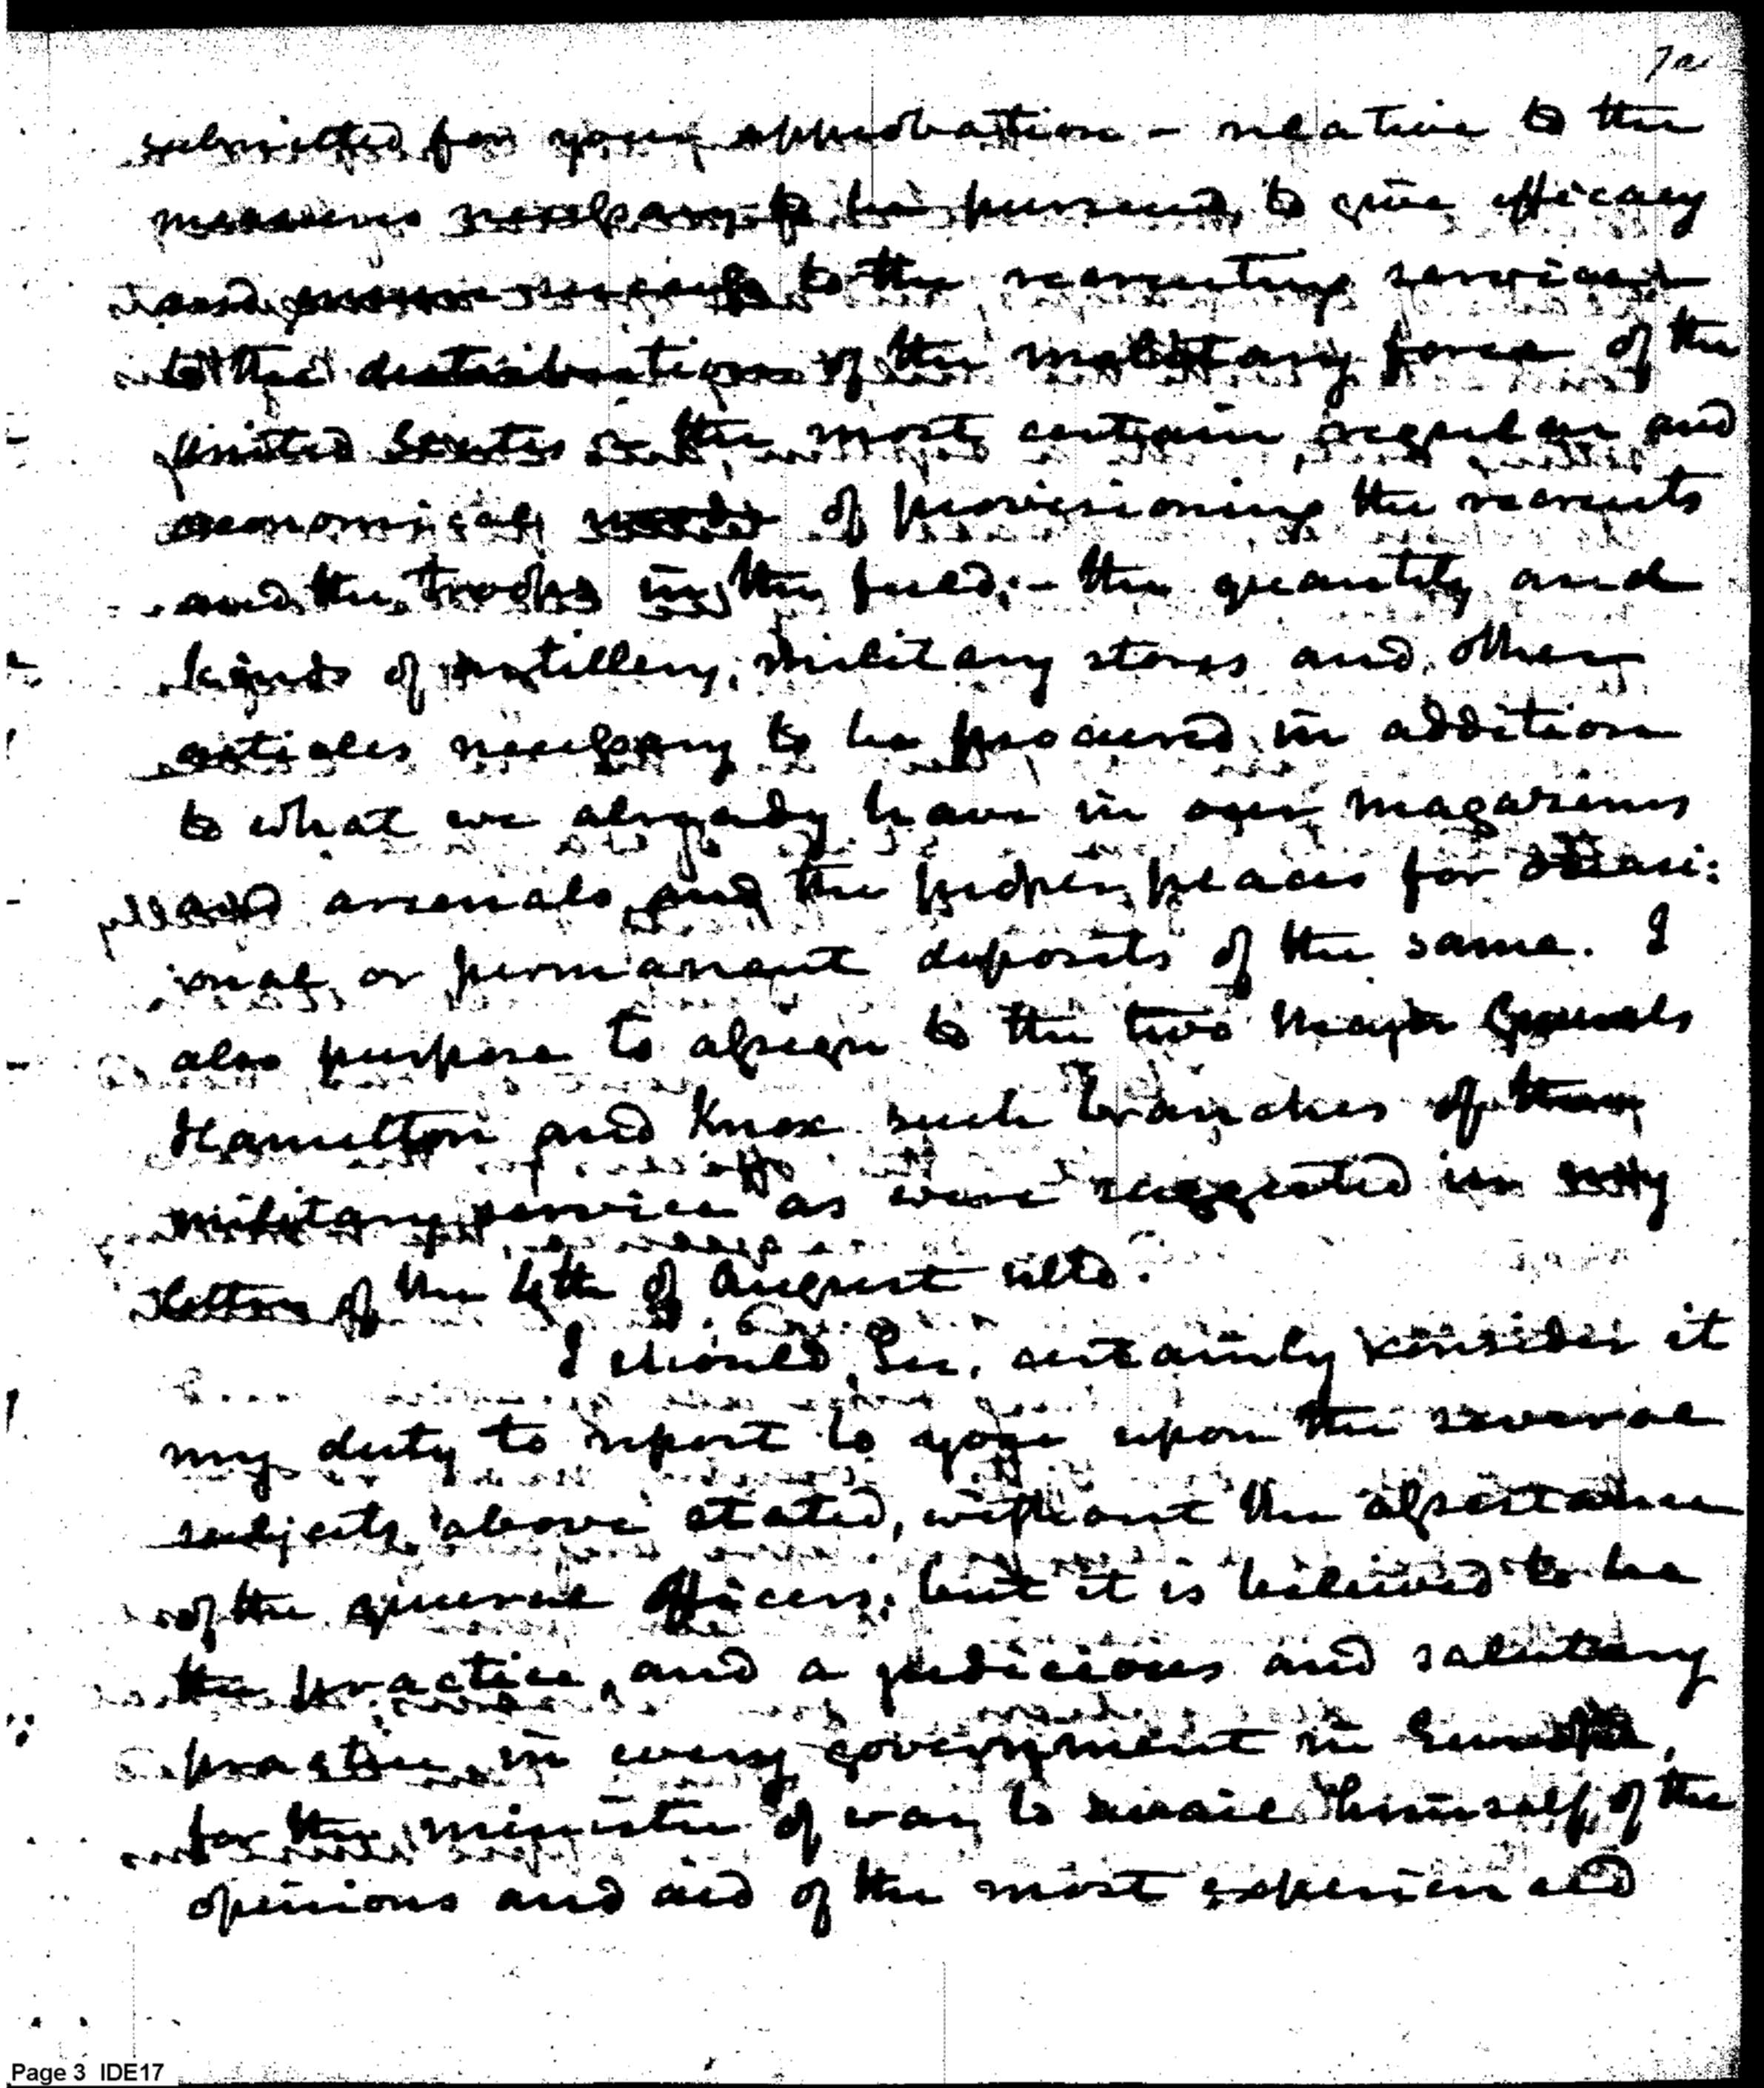 7a
submitted for your approbation - relative to the
measures necessary to be pursued, to give efficacy
and to the recruiting service
to the distribution of the military force of the
United States the most certain, regular and
economical mode of provisioning the recruits
and the troops in the field; - the quantity and
kinds of artillery, military stores and other
articles necessary to be procured in addition
to what we already have in our magazines
and arsenals, and the proper places for occasi:
onal, or permanent deposits of the same. I
also purpose to assign to the two Major Generals
Hamilton and Knox such branches of the
military service as were suggested in my
letter of the 4th of August ulto.
I should, Sir, certainly consider it
my duty to report to you upon the several
subjects above stated, without the assistance
of the general officers; but it is believed to be
the practice, and a judicious and salutary
practice, in every government in Europe,
for the minister of war, to avail himself, of the
opinions and aid of the most experienced
Page 3 IDE17